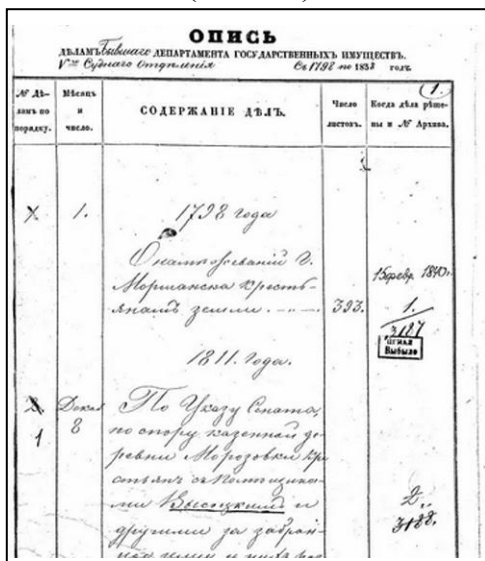 ОПИСЬ
ДѢЛАМЪ Бывшаго ДЕПАРТАМЕНТА ГОСУДАРСТВЕННЫХЪ ИМУЩЕСТВЪ.
Vго Суднаго Отдѣленія Съ 1798 по 1838 годъ.
1.
№ Дѣ-
ламъ по
порядку.
Мѣсяцъ
и
число.
СОДЕРЖАНІЕ ДѢЛЪ.
Число
листовъ.
Когда дѣла рѣше-
ны и № Архива.
1. 1798 года
О Г.
Моршанска кресть-
янамъ земли. 393.
15 февр. 1840 г.
1.
3187
ЦГИАЛ
Выбыло
1811. года.
1 8
По Указу Сената,
по спору казенной де-
ревни Морозовки кре
стьянъ съ помѣщика-
ми Высоцкимъ и
другими за забран-
2.
3188.